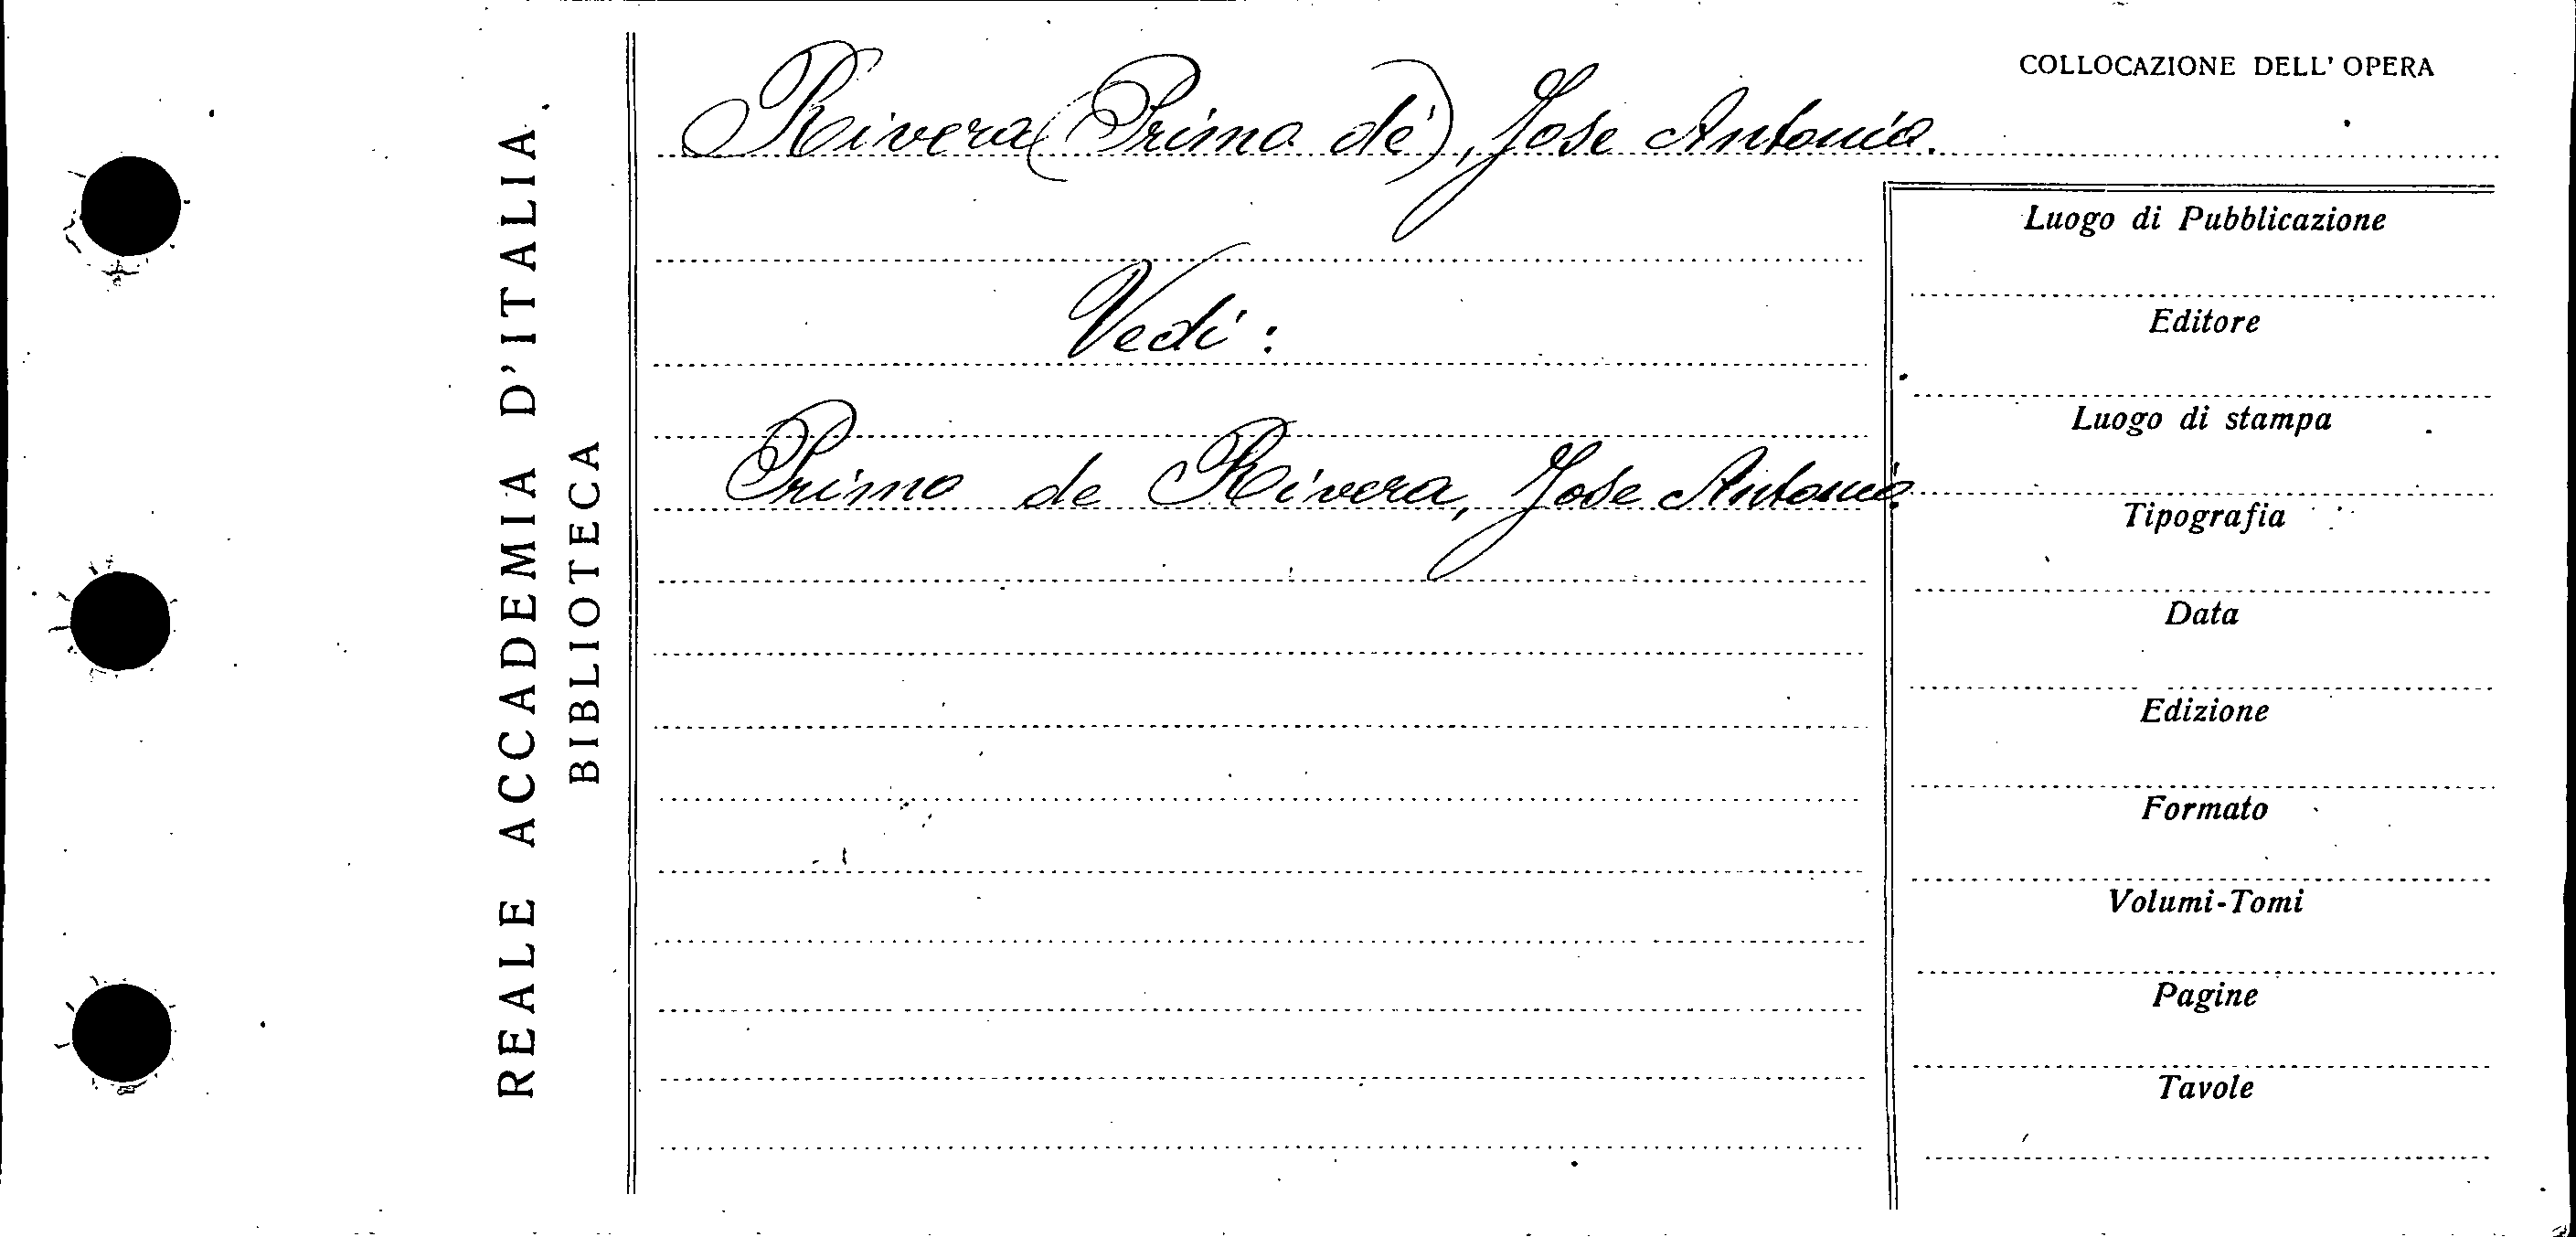 REALE ACCADEMIA D'ITALIA
BIBLIOTECA
COLLOCAZIONE DELL' OPERA
Rivera (Primo de), Jose Antonio.
Vedi:
Primo de Rivera, Jose Antonio.
Luogo di Pubblicazione
Editore
Luogo di stampa
Tipografia
Data
Edizione
Formato
Volumi-Tomi
Pagine
Tavole